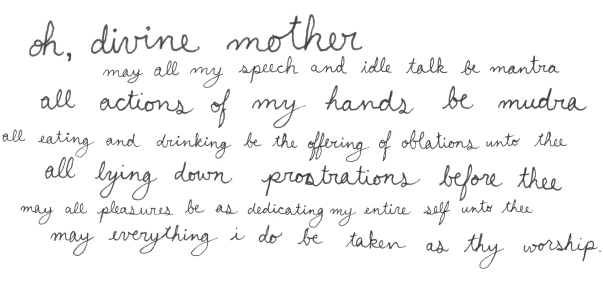 oh, divine mother
may all my speech and idle talk be mantra
all actions of my hands be mudra
all eating and drinking be the offering of oblations unto thee
all lying down prostrations before thee
may all pleasures be as dedicating my entire self unto thee
may everything i do be taken as thy worship.